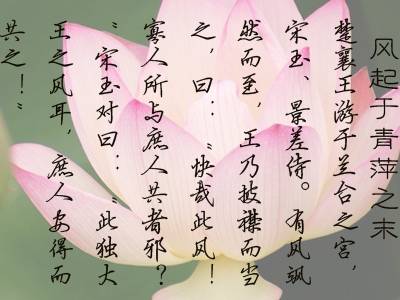 风起于青萍之末
楚襄王游于兰台之宫，
宋玉、景差侍。有风飒
然而至，王乃披襟而当
之，曰：“快哉此风！
寡人所与庶人共者邪？
”宋玉对曰：“此独大
王之风耳，庶人安得而
共之！”